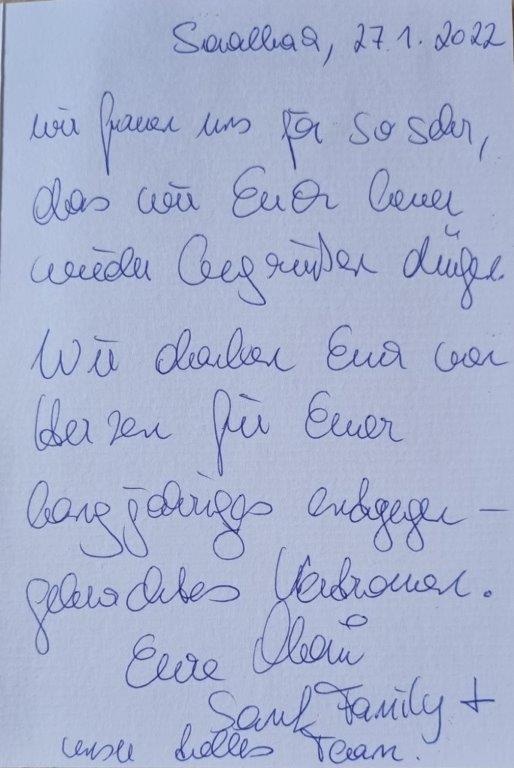 Saalbach, 27.1.2022
wir freuen uns so sehr,
das wir Euch heuer
wieder begrüßen dürfen.
Wir danken Euch von
Herzen für Euer
langjähriges entgegen-
gebrachtes Vertrauen.
Eure
Family +
unser tolles Team.